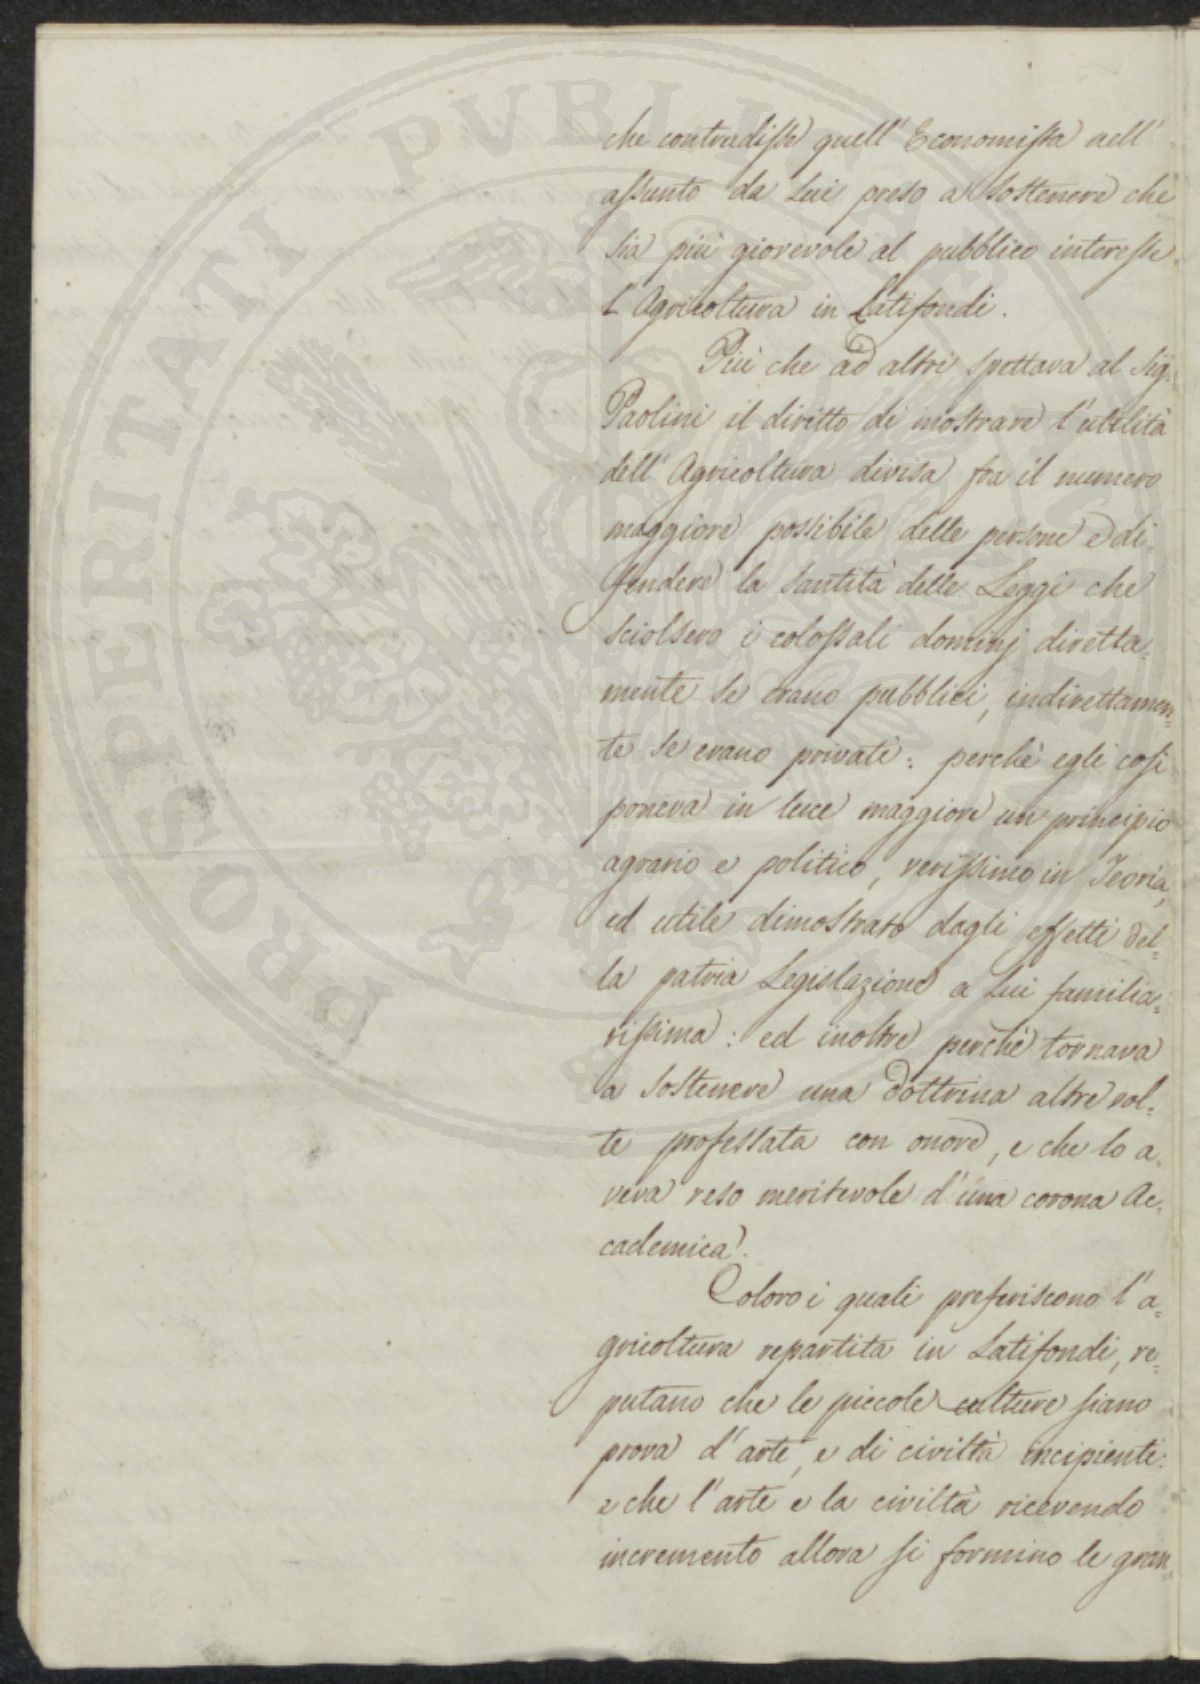 che contradisse quell' Economista nell'
assunto da lui preso a sostenere che
sia più giovevole al pubblico interesse
l'Agricoltura in Latifondi.
Più che ad altri spettava al Sig.
Paolini il diritto di mostrare l'utilità
dell' Agricoltura divisa fra il numero
maggiore possibile delle persone e di-
fendere la santità delle Leggi che
sciolsero i colossali dominj diretta-
mente se erano pubblici, indirettamen-
te se erano privati: perchè egli così
poneva in luce maggiore un principio
agrario e politico, verissimo in Teoria,
ed utile dimostrato dagli effetti del-
la patria Legislazione a lui familia-
rissima: ed inoltre perchè tornava
a sostenere una dottrina altre vol-
te professata con onore, e che lo a-
veva reso meritevole d'una corona Ac-
cademica.
Coloro i quali preferiscono l'a-
gricoltura repartita in Latifondi, re-
putano che le piccole culture siano
prova d'arte, e di civiltà incipienti:
e che l'arte e la civiltà ricevendo
incremento allora si formino le gran-
PROSPERITATI PUBLIC